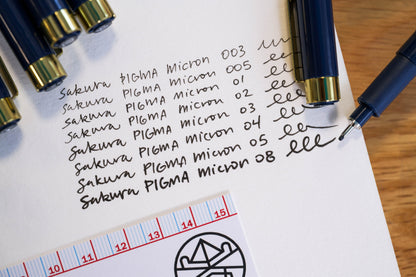 Sakura PIGMA micron 003
Sakura PIGMA micron 005
Sakura PIGMA micron 01
Sakura PIGMA micron 02
Sakura PIGMA micron 03
Sakura PIGMA micron 04
Sakura PIGMA micron 05
Sakura PIGMA micron 08
10 11 12 13 14 15